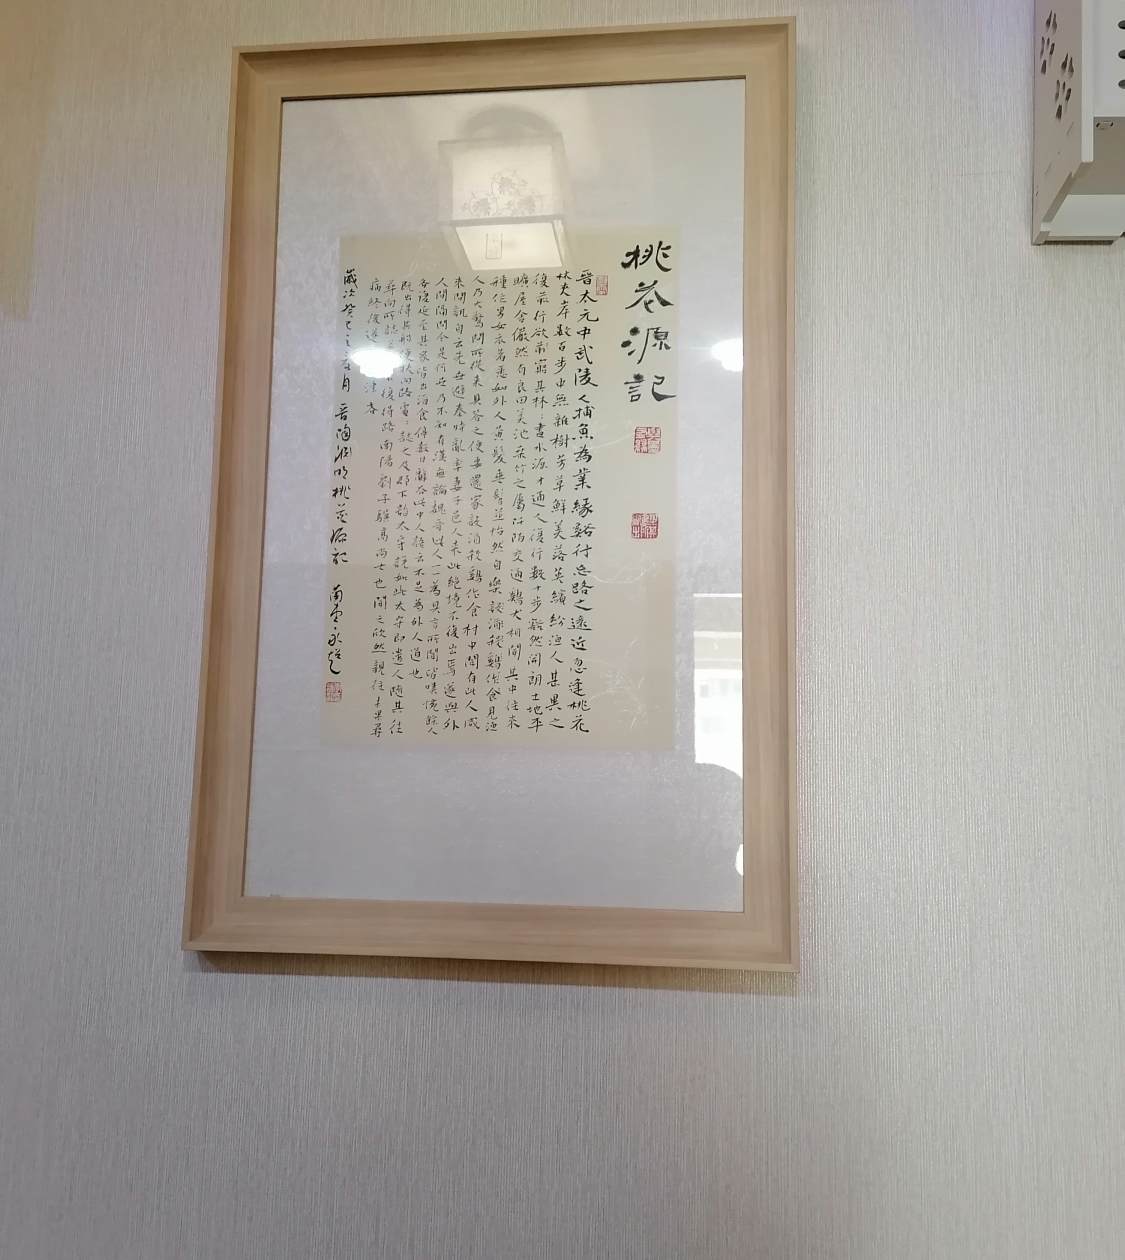 桃花源記
晉太元中武陵人捕魚為業緣谿行忘路之遠近忽逢桃花
林夾岸數百步中無雜樹芳草鮮美落英繽紛漁人甚異之
復前行欲窮其林林盡水源才通人復行數十步豁然開朗土地平
曠屋舍儼然有良田美池桑竹之屬阡陌交通鷄犬相聞其中往來
種作男女衣著悉如外人黃髮垂髫並怡然自樂設酒殺鷄作食見漁
人乃大驚問所從來具答之便要還家設酒殺鷄作食村中聞有此人咸
來問訊自云先世避秦時亂率妻子邑人來此絕境不復出焉遂與外
人間隔問今是何世乃不知有漢無論魏晉此人一一為具言所聞皆嘆惋餘人
各復延至其家皆出酒食停數日辭去此中人語云不足為外人道也
既出得其船便扶向路處處誌之及郡下詣太守說如此太守即遣人隨其往
尋向所誌 復得路南陽劉子驥高尚士也聞之欣然親往未果尋
病終後遂 津者
歲次癸巳 月 晉陶淵明桃花源記 南 永